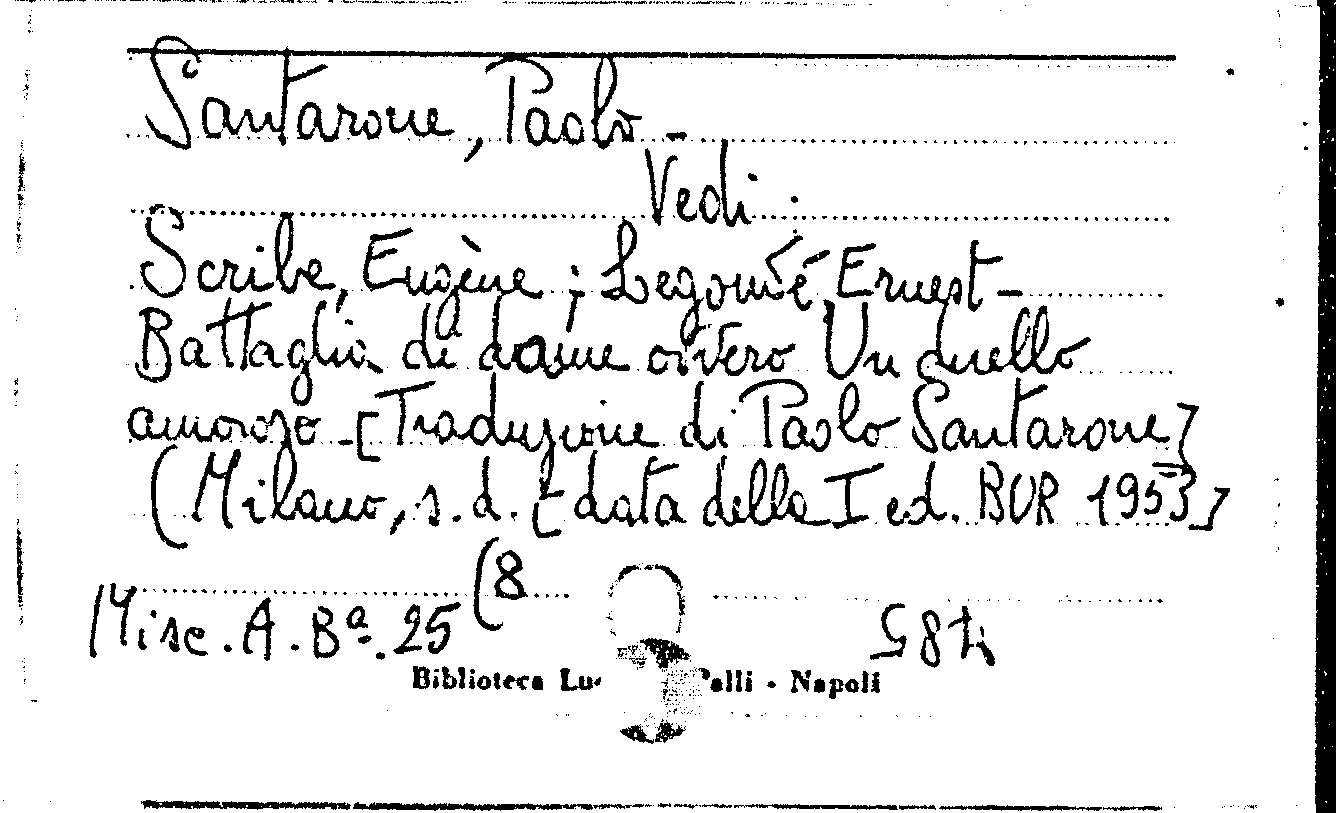 Santarone, Paolo -
Vedi :
Scribe, Eugène ; Legouvé Ernest -
Battaglia di dame ovvero Un duello
amoroso - [Traduzione di Paolo Santarone]
(Milano, s.d. [data della I ed. BUR 1953]
Misc. A. Bª. 25 (8
Biblioteca Palli · Napoli